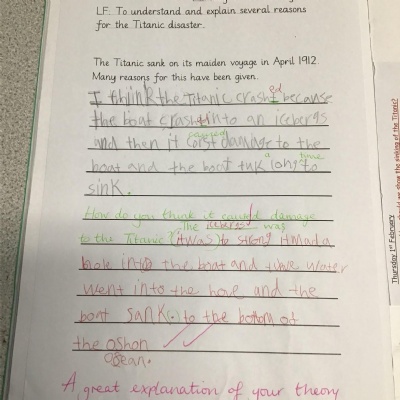 LF: To understand and explain several reasons
for the Titanic disaster.
The Titanic sank on its maiden voyage in April 1912.
Many reasons for this have been given.
ed
I think the Titanic crasht because
the boat crasht into an icebergs
caused
and then it corst damage to the
a time
boat and the boat tuk long to
sink.
How do you think it caused damage
The iceberg was
to the Titanic? it was to strong it mad a
hole into the boat and the water
went into the hole and the
boat sank. to the bottom of
the oshon
Ocean.
A great explanation of your theory
Thursday 1st February
the sinking of the Titanic?